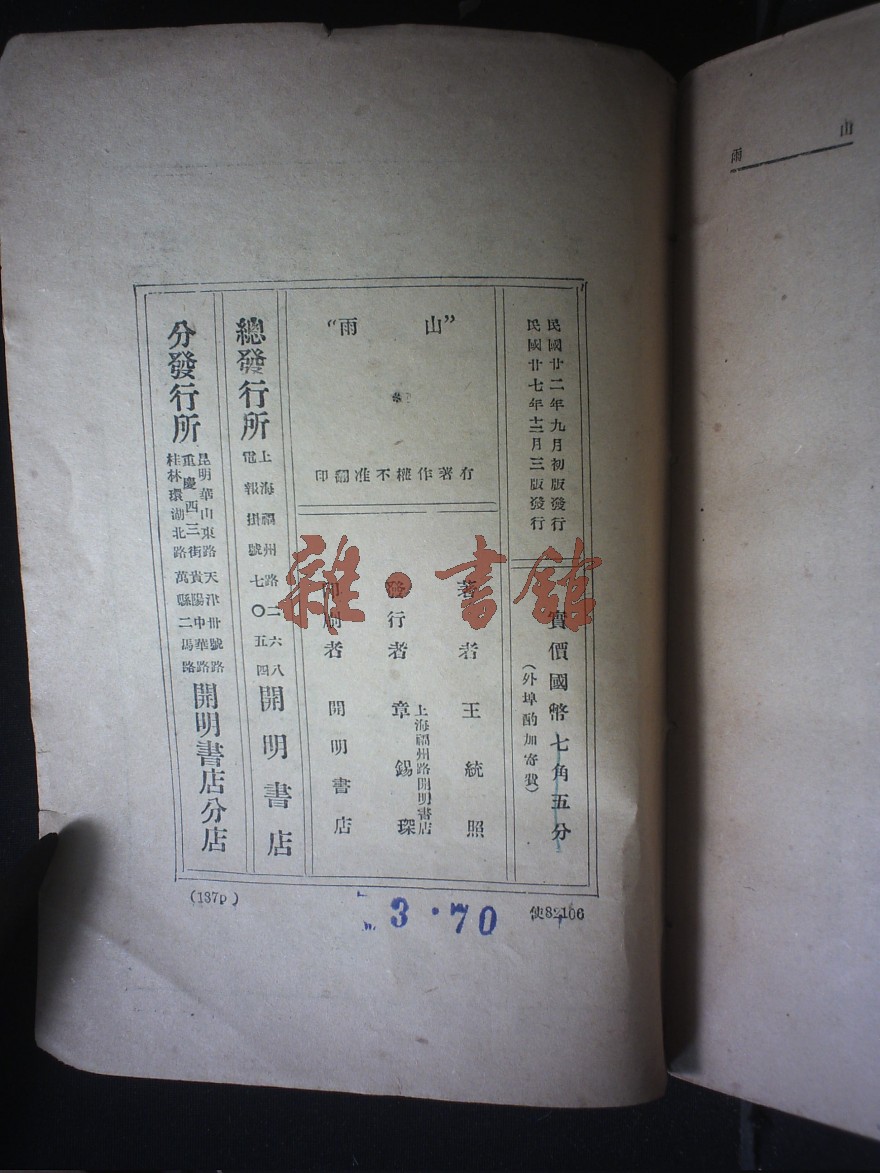 山雨
民國廿二年九月初版發行
民國廿七年十二月三版發行
實價國幣七角五分
(外埠酌加寄費)
"山雨"
有著作權不准翻印
著者 王統照
發行者 章錫琛
上海福州路開明書店
印刷者 開明書店
總發行所
上海福州路二六八
電報掛號七〇五四
開明書店
分發行所
昆明華山東路 天津卅號路
重慶西三街 貴陽中華路
桂林環湖北路 萬縣二馬路
開明書店分店
(137p)
3.70
雜·書館